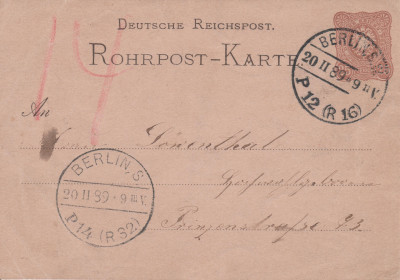 DEUTSCHE REICHSPOST.
ROHRPOST-KARTE
BERLIN, S.W.
20 II 89 * 9 ¾ V.
P 12 (R 16)
14
An
Herrn Löventhal
Prinzenstraße 23
BERLIN, S.
20 II 89 * 9 V.
P 14 (R 32)